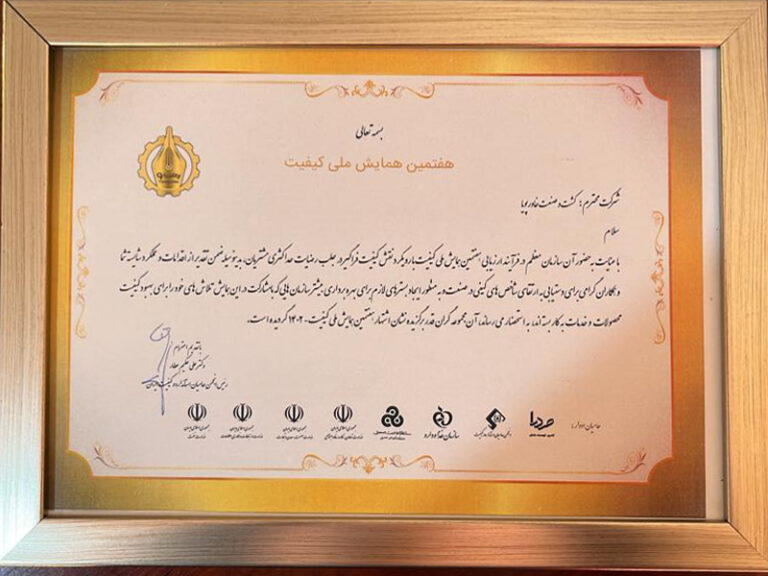 بسمه تعالی
هفتمین همایش ملی کیفیت
شرکت محترم: کشت و صنعت خاور پویا
سلام
با عنایت به حضور آن سازمان معظم در فرآیند ارزیابی هفتمین همایش ملی کیفیت با رویکرد نقش کیفیت فراگیر در جلب رضایت حداکثری مشتریان، بدینوسیله ضمن تقدیر از اقدامات و عملکرد شایسته شما
و همکاران گرامی برای دستیابی به ارتقای شاخص های کیفی در صنعت و به منظور ایجاد بسترهای لازم برای بهره برداری، بیشتر سازمان هایی که با مشارکت در این همایش تلاش های خود را برای بهبود کیفیت
محصولات و خدمات به کار بسته اند، به استحضار می رساند، آن مجموعه گران قدر برگزیده نشان اشتهار هفتمین همایش ملی کیفیت - ۱۴۰۲ گردیده است.
با تقدیم احترام
دکتر علی حکیم عطار
رئیس انجمن حامیان استاندارد و کیفیت ایران
حامیان ادوار:
سازمان غذا و دارو